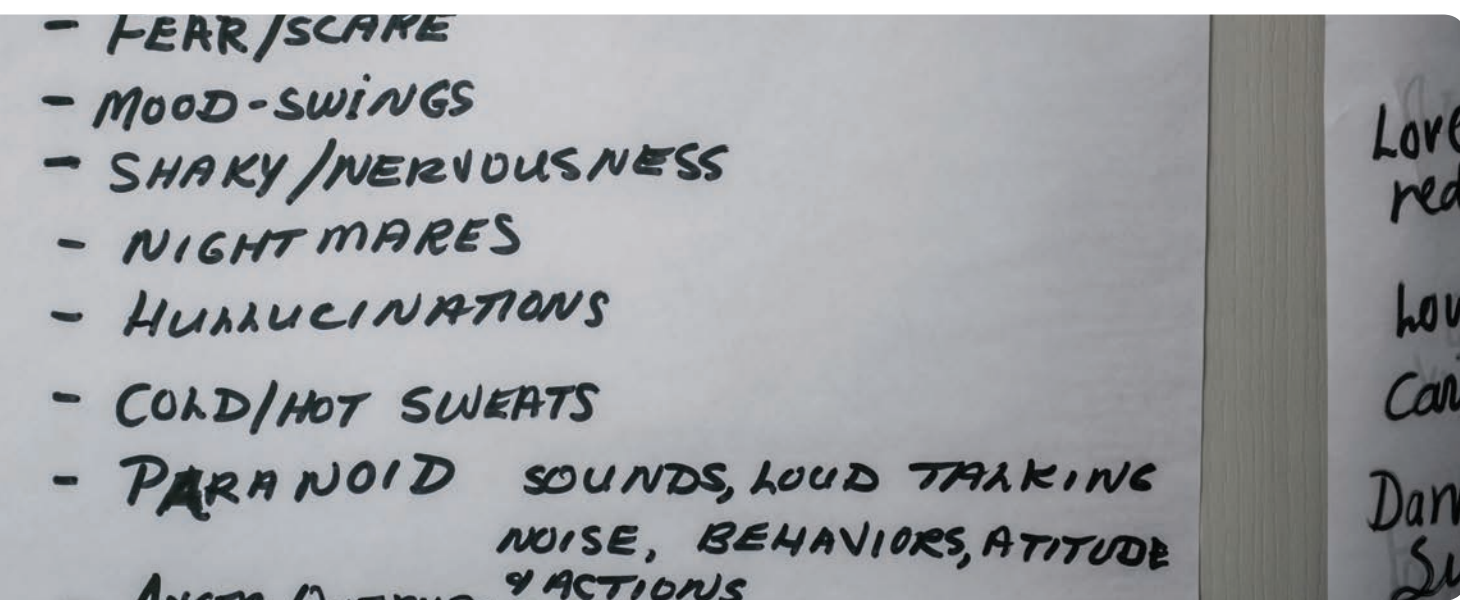 - FEAR/SCARE
- MOOD-SWiNGS
- SHAKY/NERVOUSNESS
- NIGHTMARES
- HULLUCINATIONS
- COLD/HOT SWEATS
- PARANOID SOUNDS, LOUD TALKING
NOISE, BEHAVIORS, ATITUDE
& ACTIONS
Love
red
Lov
Can